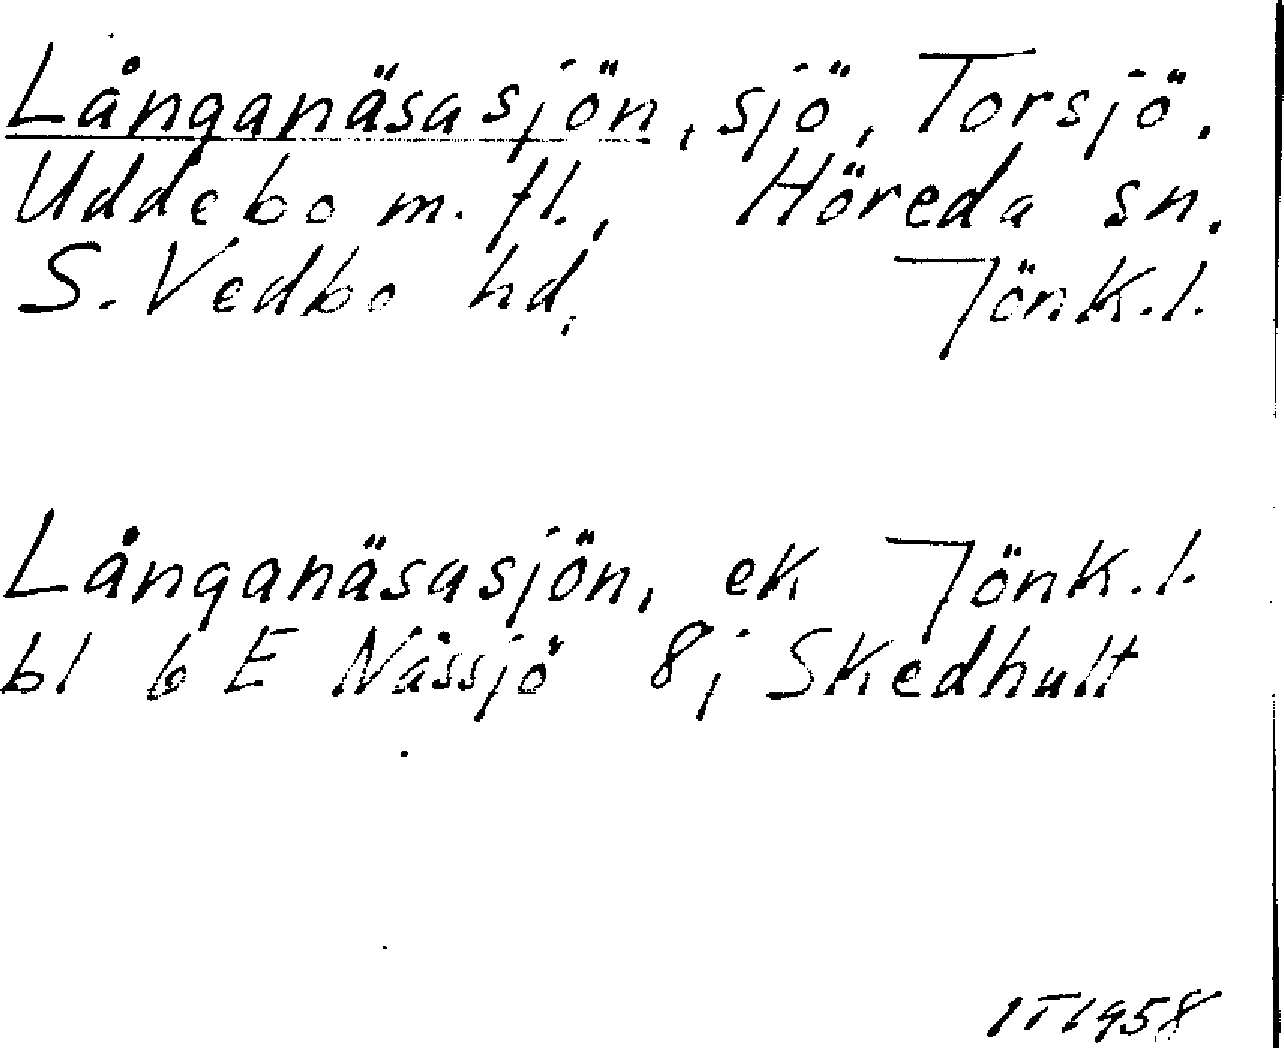 Långanäsasjön, sjö, Torsjö,
Uddebo m. fl., Höreda sn.
S. Vedbo hd, Jönk.l.
Långanäsasjön, ek Jönk.l.
bl 6 E Nässjö 8j Skedhult
IT1958